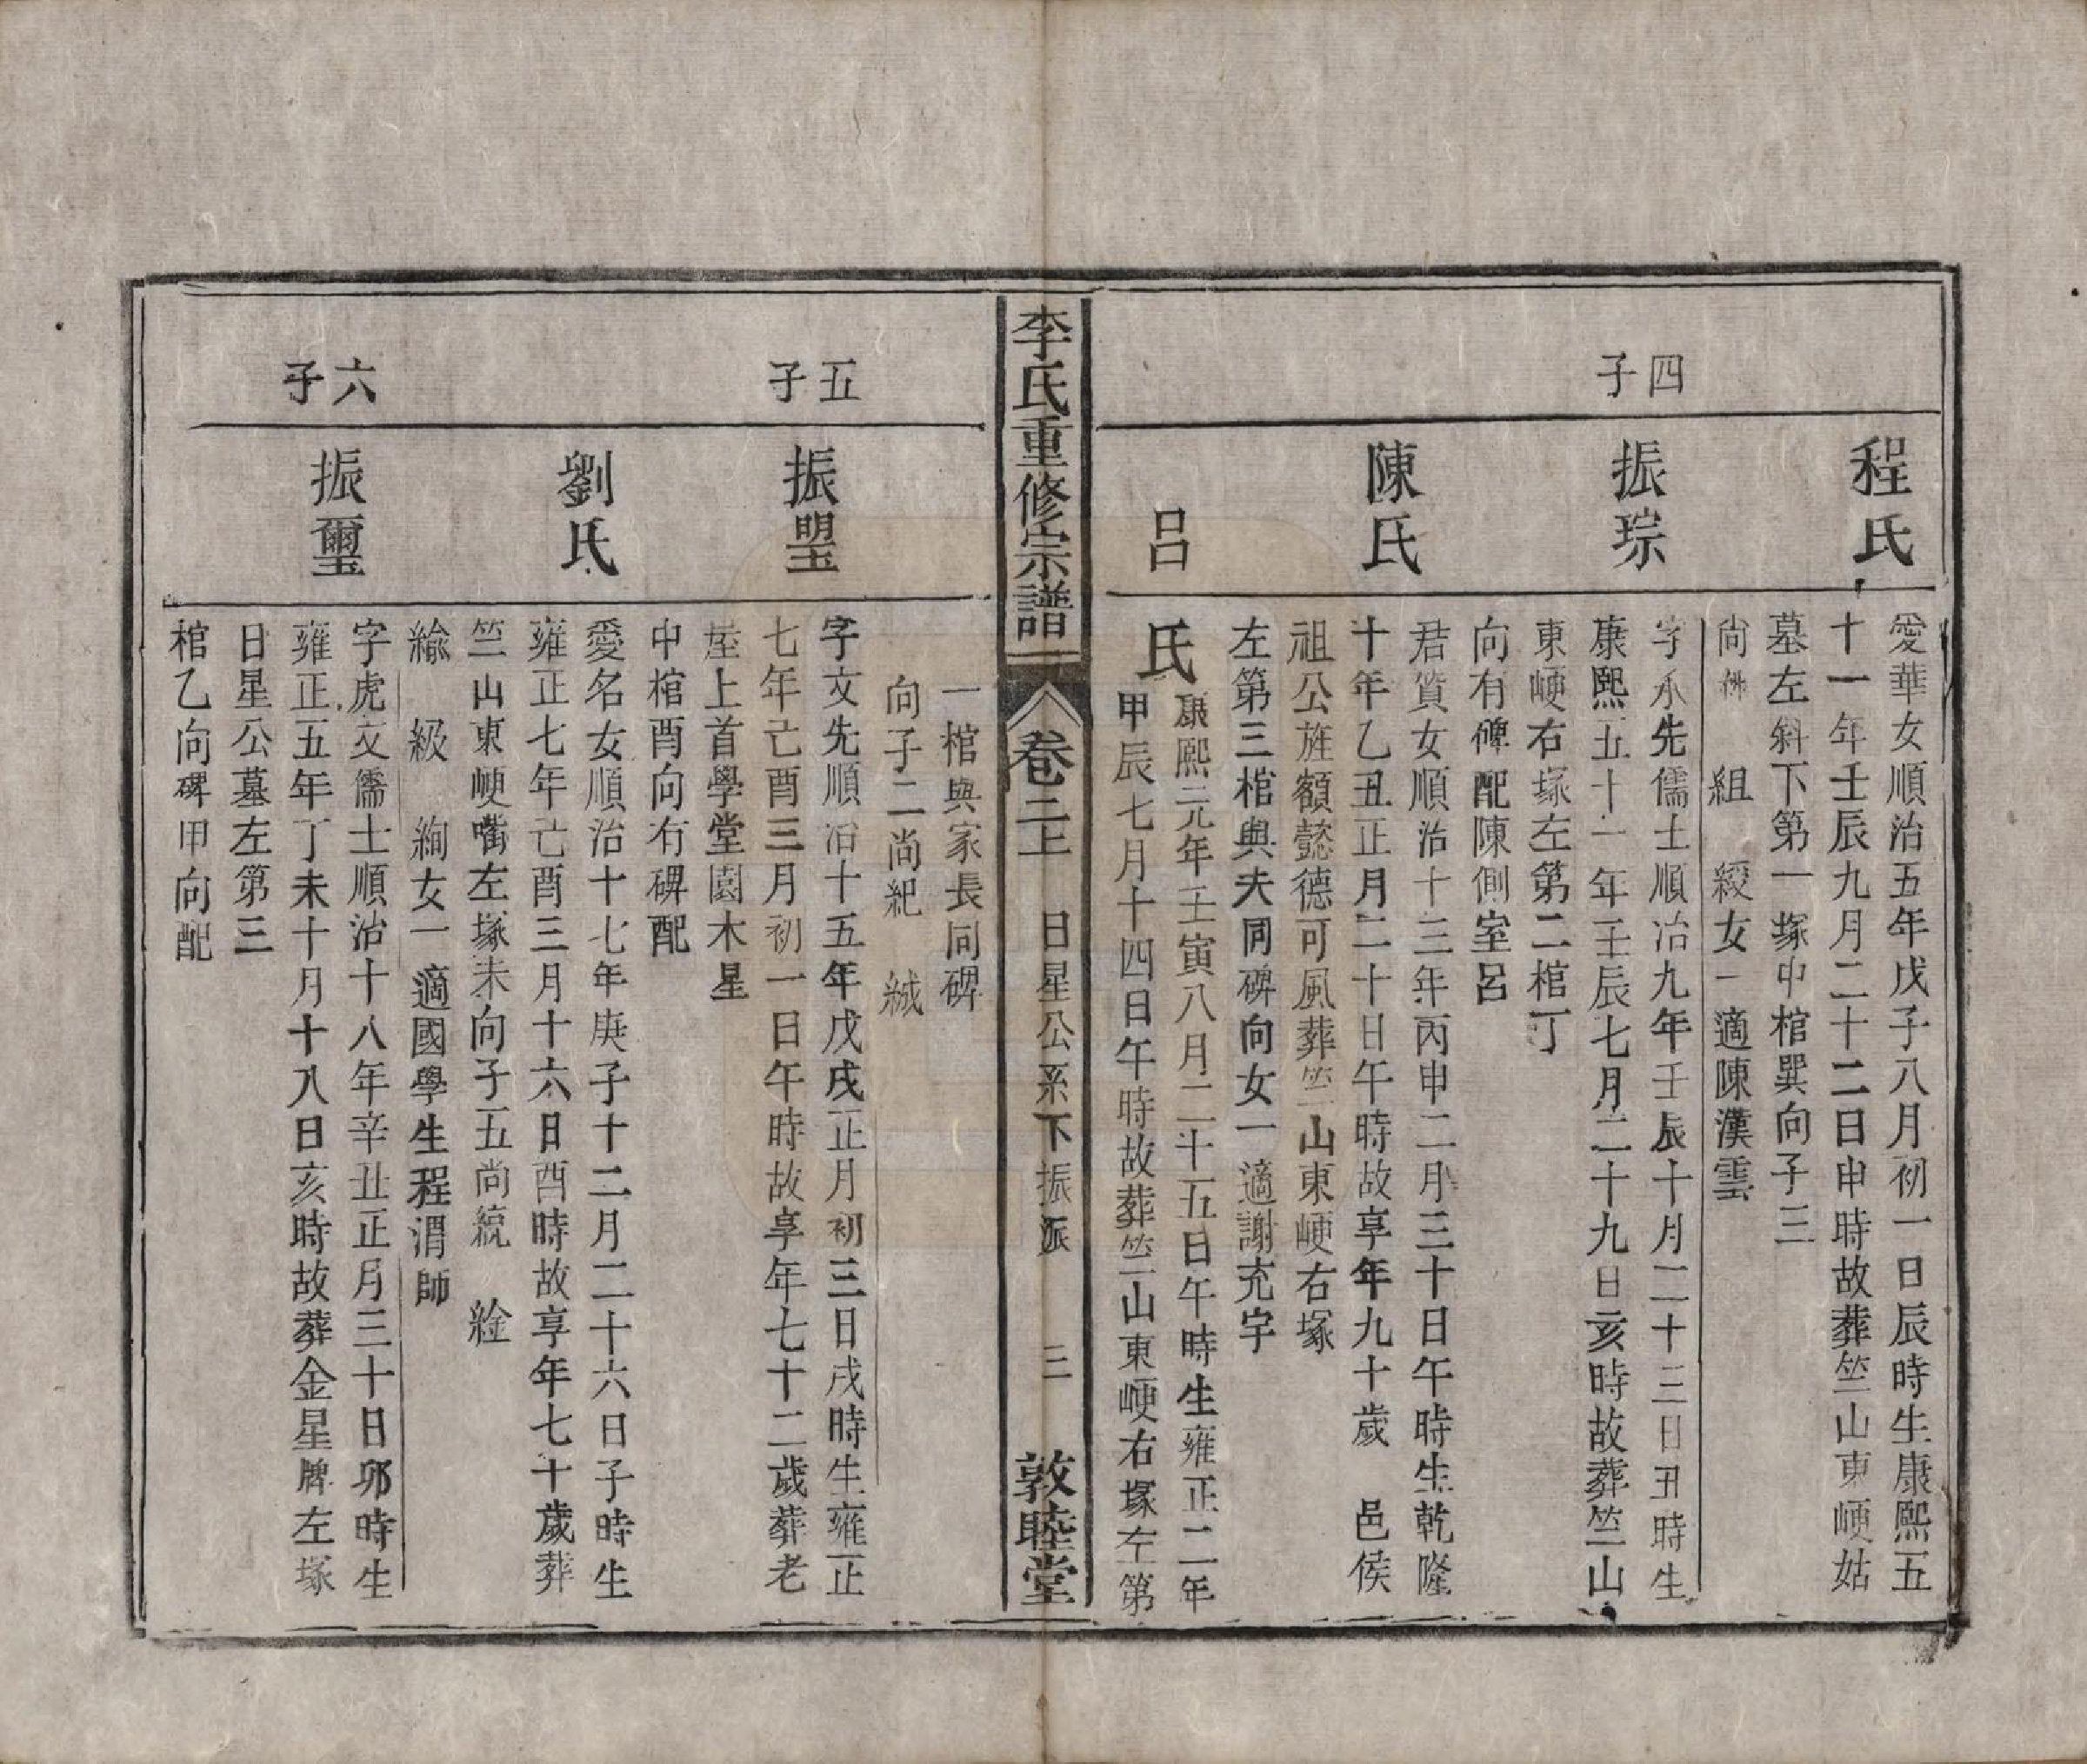 程氏
愛華女順治五年戊子八月初一日辰時生康熙五
十一年壬辰九月二十二日申時故葬竺山東峺姑
墓左斜下第一塚中棺巽向子三
尚 組 綬女一適陳漢雲
四子
振琮
字承先儒士順治九年壬辰十月二十三日丑時生
康熙五十一年壬辰七月二十九日亥時故葬竺山
東峺右塚左第二棺丁
向有碑配陳側室呂
陳氏
君質女順治十三年丙申二月三十日午時生乾隆
十年乙丑正月二十日午時故享年九十歲 邑侯
祖公旌額懿德可風葬竺山東峺右塚
左第三棺與夫同碑向女一適謝充宇
呂
氏
康熙元年壬寅八月二十五日午時生雍正二年
甲辰七月十四日午時故葬竺山東峺右塚左第
李氏重修宗譜
卷二上
日星公系下振派
三
敦睦堂
一棺與家長同碑
向子二尚紀 緎
五子
振琞
字文先順治十五年戊戌正月初三日戌時生雍正
七年己酉三月初一日午時故享年七十二歲葬老
屋上首學堂園木星
中棺酉向有碑配
劉氏
愛名女順治十七年庚子十二月二十六日子時生
雍正七年己酉三月十六日酉時故享年七十歲葬
竺山東峺嘴左塚未向子五尚統 絵
綸 級 絢女一適國學生程渭師
六子
振璽
字虎文儒士順治十八年辛丑正月三十日卯時生
雍正五年丁未十月十八日亥時故葬金星牌左塚
日星公墓左第三
棺乙向碑甲向配